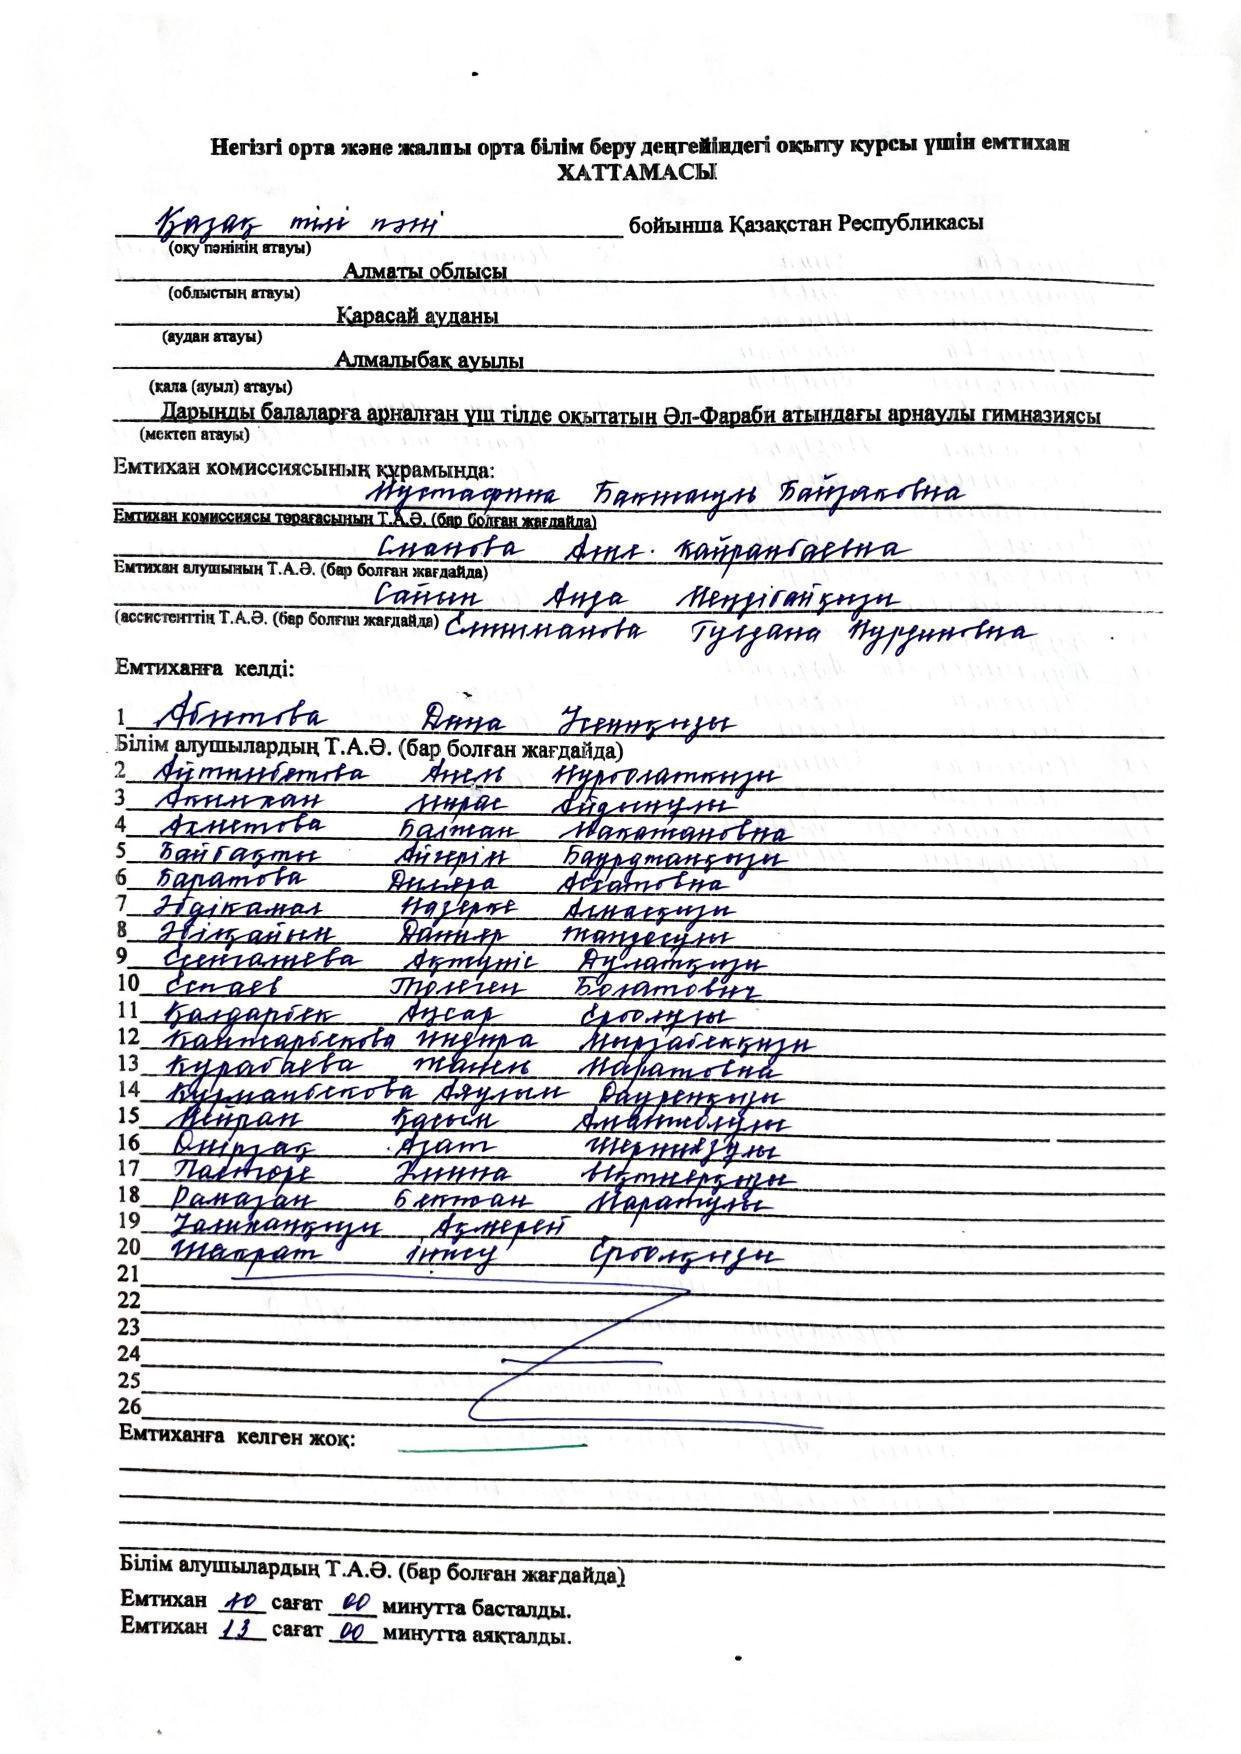 Негізгі орта және жалпы орта білім беру деңгейіндегі оқыту курсы үшін емтихан
ХАТТАМАСЫ
Қазақ тілі пәні бойынша Қазақстан Республикасы
(оқу пәнінің атауы)
Алматы облысы
(облыстың атауы)
Қарасай ауданы
(аудан атауы)
Алмалыбақ ауылы
(кала (ауыл) атауы)
Дарынды балаларға арналған үш тілде оқытатын Әл-Фараби атындағы арнаулы гимназиясы
(мектеп атауы)
Емтихан комиссиясының құрамында:
Мустафина Бактагуль Байзаковна
Емтихан комиссиясы төрағасының Т.А.Ә. (бар болған жағдайда)
Сманова Кайранбаевна
Емтихан алушының Т.А.Ә. (бар болған жағдайда)
Сайын Аида Меңдібайқызы
(ассистенттің Т.А.Ә. (бар болған жағдайда) Гулдана Нурдиновна
Емтиханға келді:
1 Абитова Дина
Білім алушылардың Т.А.Ә. (бар болған жағдайда)
2 Анель Нурболатқызы
3 Акимхан Мирас Айдынұлы
4 Ахметова Балжан Макатановна
5 Байбақты Айгерім Бауржанқызы
6 Баратова Диляра Асхатовна
7 Әбдікамал Назерке Алмасқызы
8 Әбіқайым Данияр
9 Есенгалиева Ақтүніс Дулатқызы
10 Еспаев Төлеген Болатович
11 Қалдарбек Аңсар Ерболұлы
12 Кантарбекова Индира Мырзабекқызы
13 Курабаева Жанель Маратовна
14 Курманбекова Аяулым Дауренқызы
15 Мейран Қасым Аманжолұлы
16 Өмірзақ Азат Шерниязұлы
17 Элина
18 Рамазан Бекжан Маратұлы
19 Ақмерей
20 Іңкәр Ерболқызы
21
22
23
24
25
26
Емтиханға келген жоқ:
Білім алушылардың Т.А.Ә. (бар болған жағдайда)
Емтихан 10 сағат 00 минутта басталды.
Емтихан 13 сағат 00 минутта аяқталды.